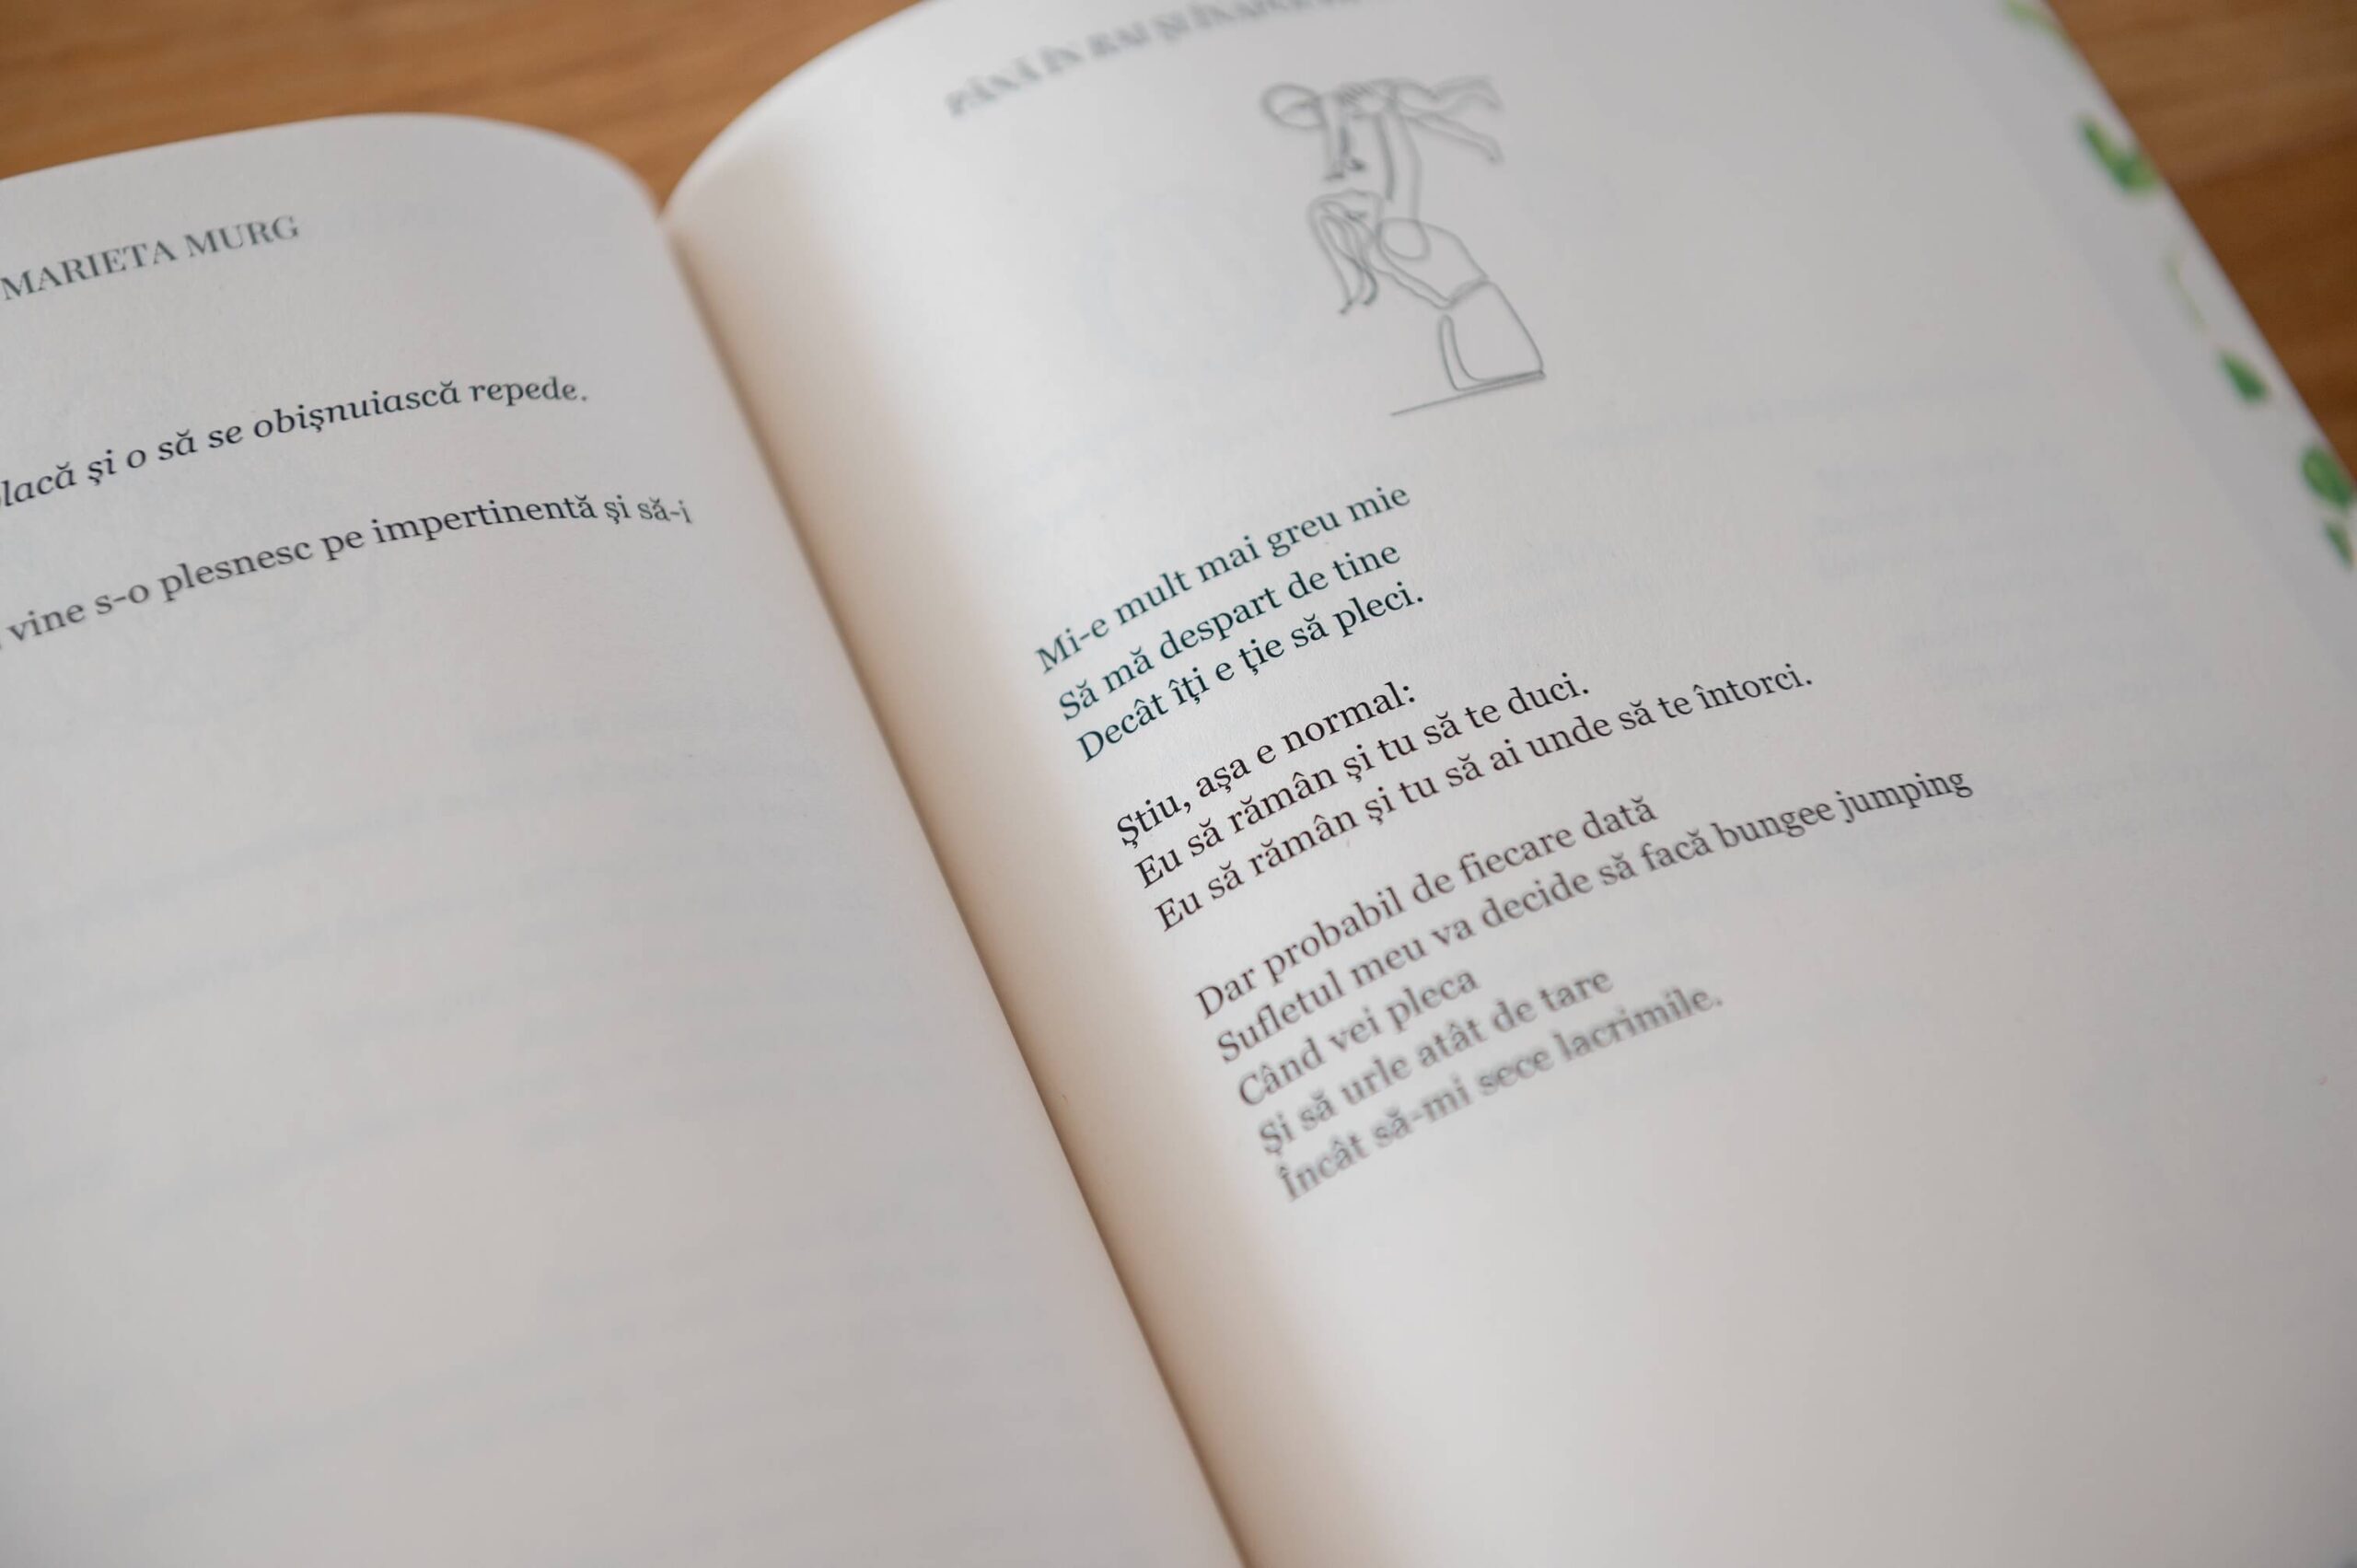 MARIETA MURG
şi o să se obişnuiască repede.
vine s-o plesnesc pe impertinentă şi să-i
PÂNĂ ÎN RAI ŞI
Mi-e mult mai greu mie
Să mă despart de tine
Decât îţi e ţie să pleci.
Ştiu, aşa e normal:
Eu să rămân şi tu să te duci.
Eu să rămân şi tu să ai unde să te întorci.
Dar probabil de fiecare dată
Sufletul meu va decide să facă bungee jumping
Când vei pleca
Şi să urle atât de tare
Încât să-mi sece lacrimile.